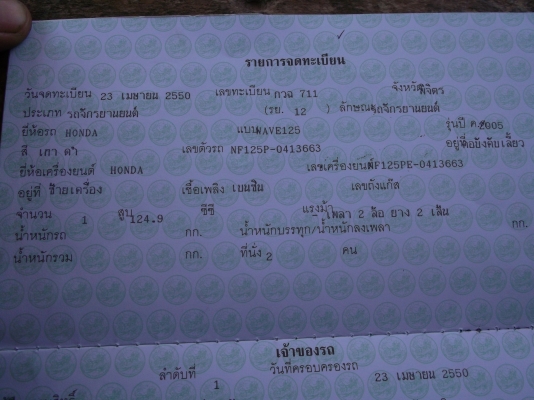 รายการจดทะเบียน
วันจดทะเบียน 23 เมษายน 2550 เลขทะเบียน กวฉ 711 จังหวัด พิจิตร
ประเภท รถจักรยานยนต์ (รย. 12 ) ลักษณะ รถจักรยานยนต์
ยี่ห้อรถ HONDA แบบ WAVE125 รุ่นปี ค.ศ. 2005
สี เทา ดำ เลขตัวรถ NF125P-0413663 อยู่ที่
ยี่ห้อเครื่องยนต์ HONDA เลขเครื่องยนต์ NF125PE-0413663
อยู่ที่ ซ้ายเครื่อง เชื้อเพลิง เบนซิน เลขถังแก๊ส
จำนวน 1 สูบ 124.9 ซีซี แรงม้า เพลา 2 ล้อ ยาง 2 เส้น
น้ำหนักรถ กก. น้ำหนักบรรทุก/น้ำหนักลงเพลา กก.
น้ำหนักรวม กก. ที่นั่ง 2 คน
เจ้าของรถ
ลำดับที่ 1 วันที่ครอบครองรถ 23 เมษายน 2550